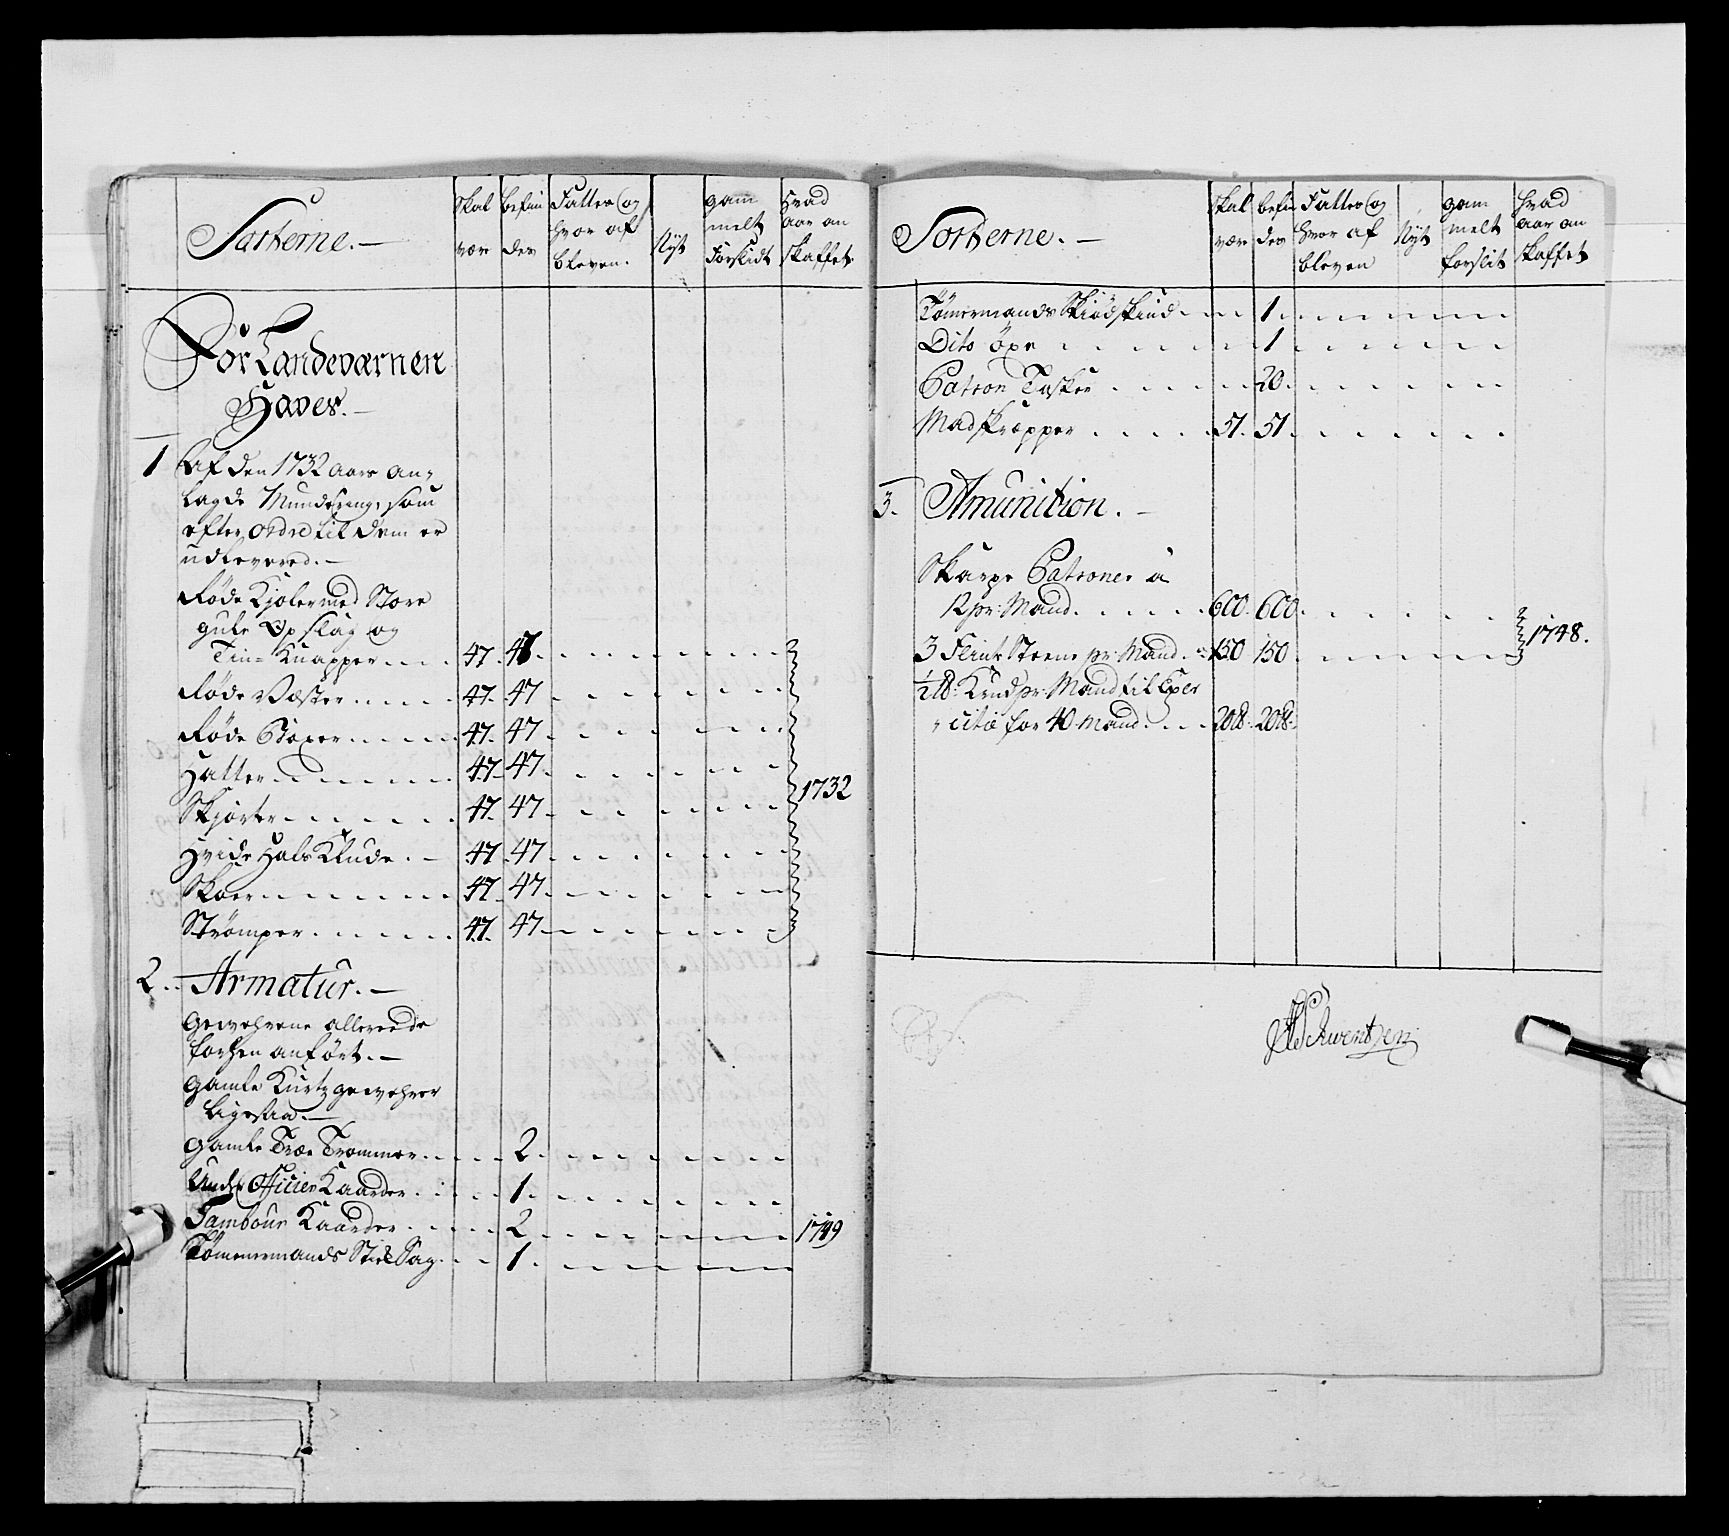 Sorterne.— Skal være befindes Fatter og hvor af bleven. Nyt gammelt Forslidt Hvad aar anskaffet
For Landeværnen
Haves.—
1 Af den 1732 aars an-
lagde Mundering, som
efter ordre til dem er
udlevered.—
Røde Kjoler med Store
gule Opslag og
Tin-Knapper 47. 47
Røde Væster 47. 47
Røde Böxer 47. 47
Hatter 47. 47
1732
Skjorter 47. 47
Hvide Hals Klude. 47. 47
Skoer 47. 47
Strømper 47. 47
2. Armatur.—
Gewehrene allereede
forhen anført.—
Gamle Kurtzgewehrer
ligesaa.—
Gamle Træe Trommer 2
Under Officier Kaarder 1
Tambour Kaarder 2 1749
Tømmermands Stik Sag 1
Sorterne.— Skal være befindes Fatter og hvor af bleven Nyt gammelt forslit hvad aar anskaffet
Tømermands Skiødskind 1
Dito öxe 1
Patron Tasker 20
Madskræpper 51. 51
3. Amunition.—
Skarpe Patroner a
12 pr: Mand 600. 600
1748.
3 Flint Steene pr: Mand 150 150
1/2 lb: Krud pr: Mand til Exer
citie for 40 Mand 20 lb: 20 lb:
Schwentzen